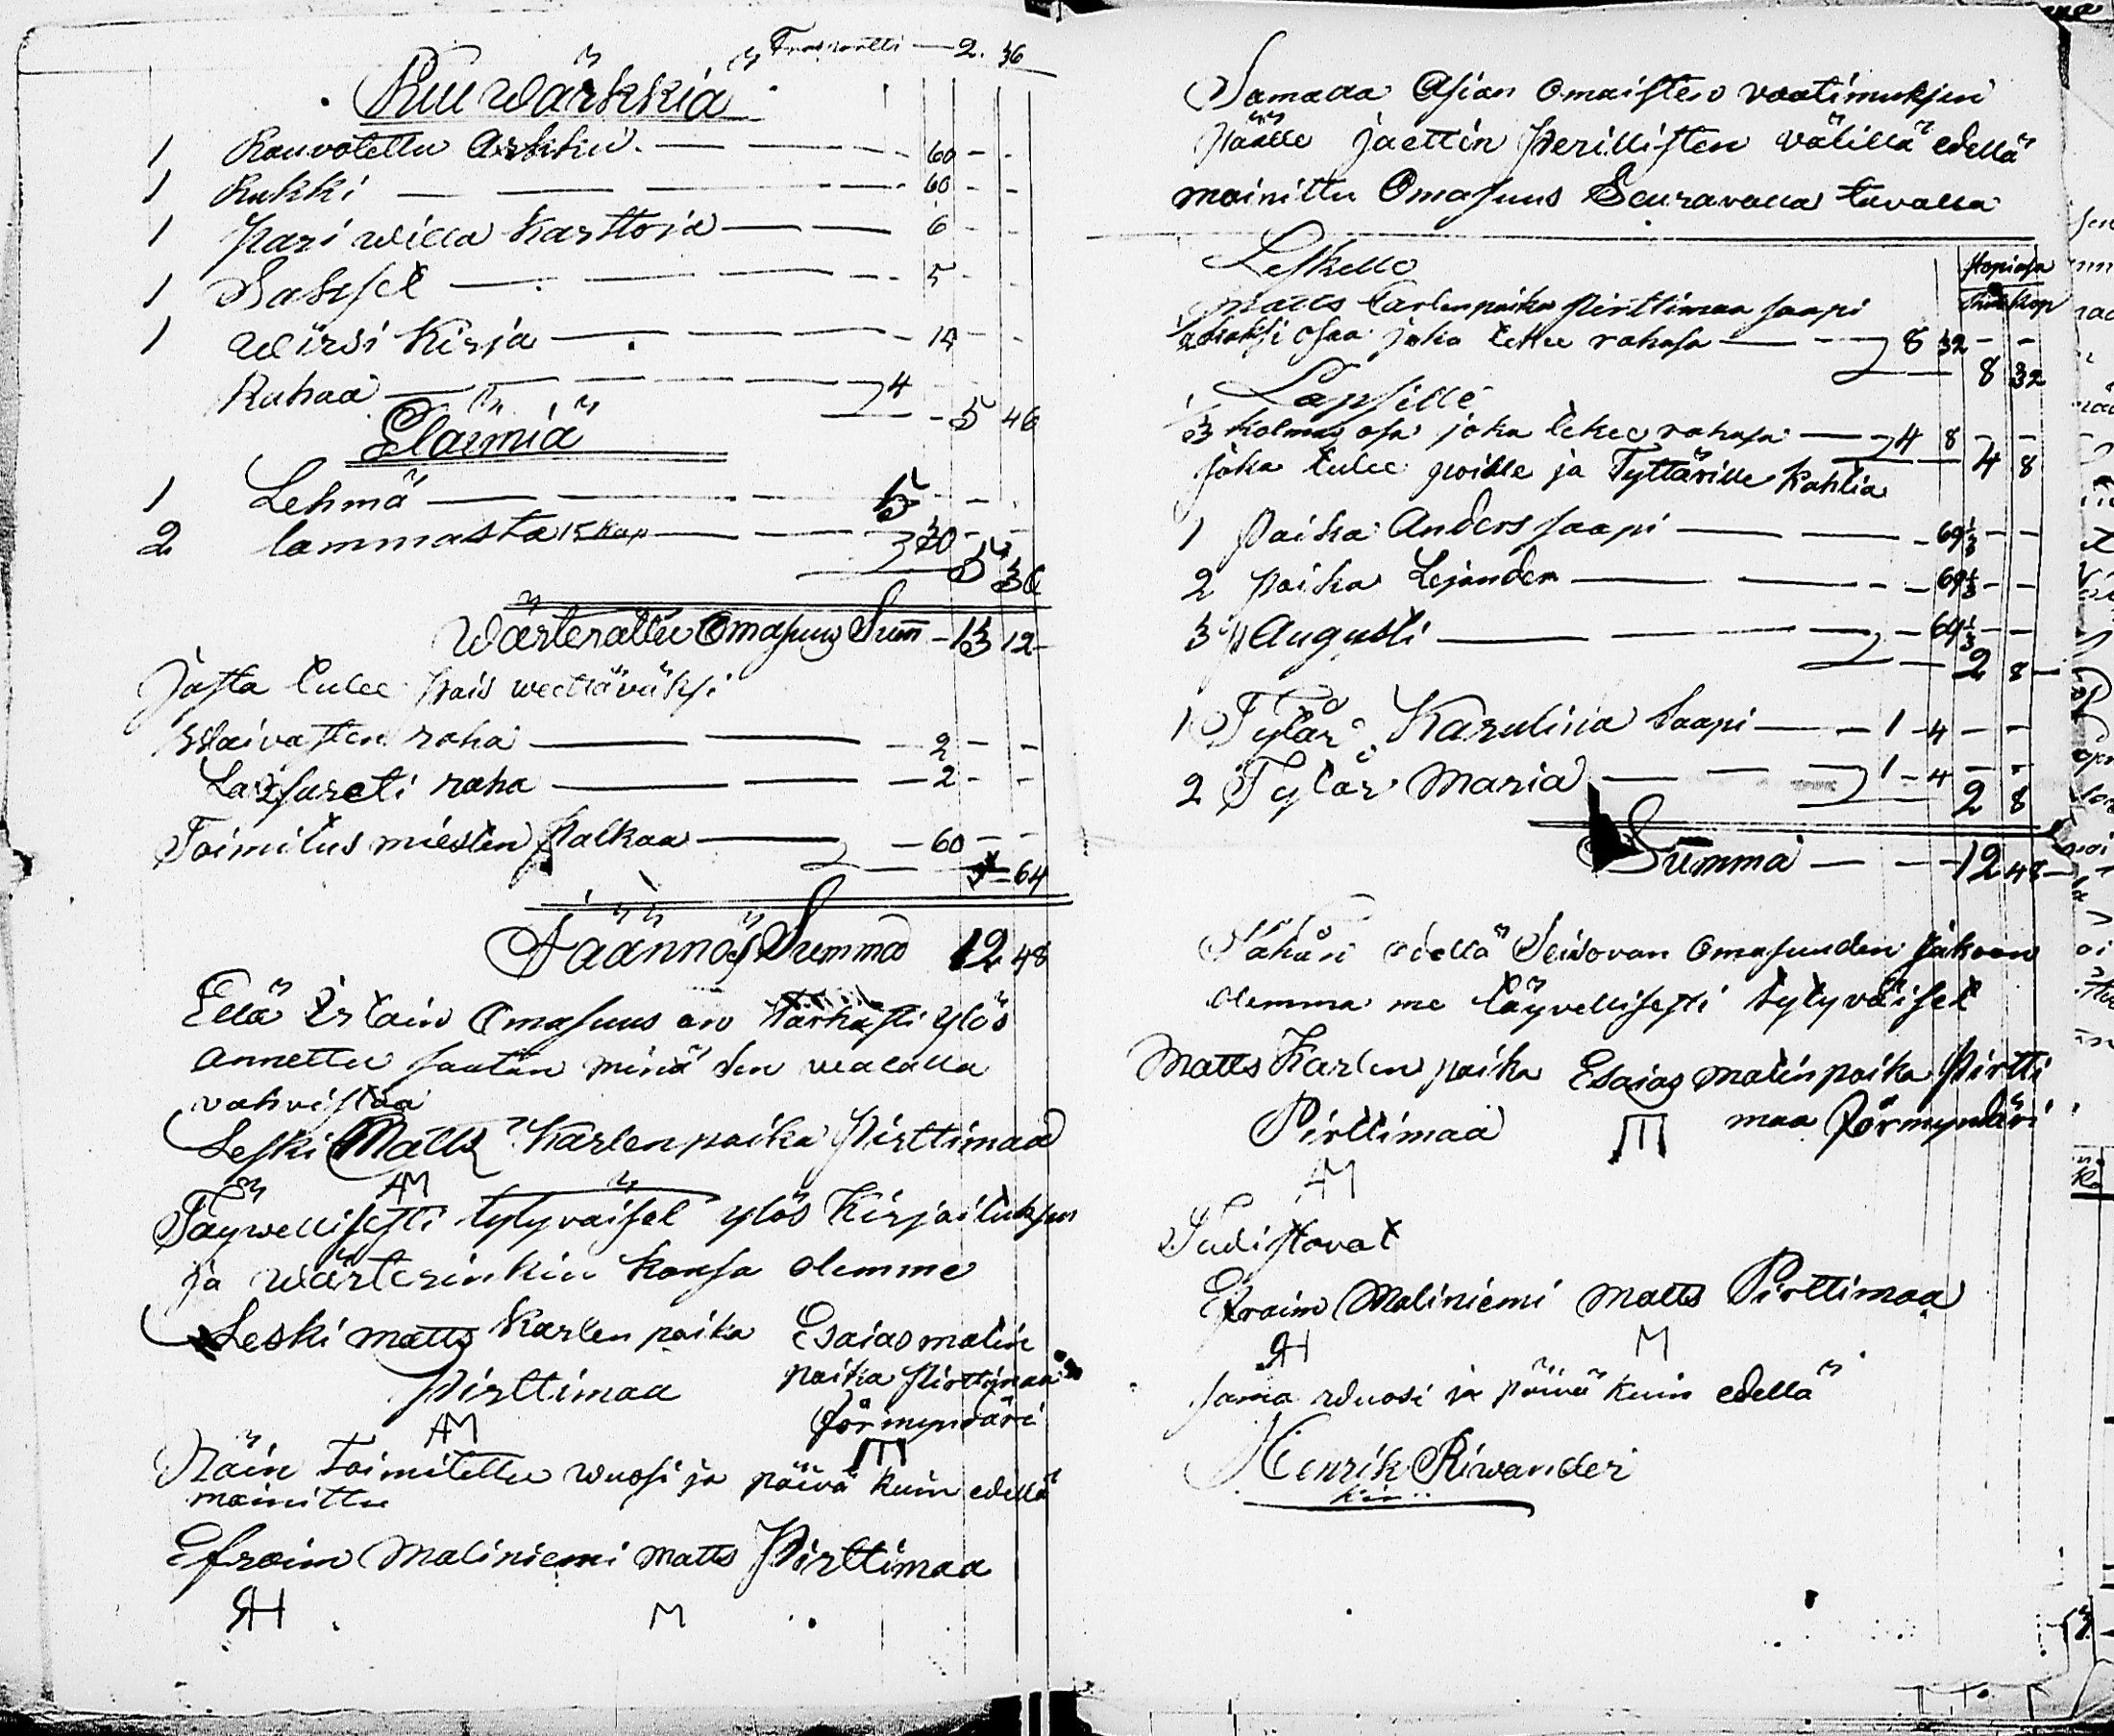 Transportti — 2. 36
Puu wärkkiä
1 Rauvotettu Arkku — 60 - -
1 Rukki — 60 - -
1 Pari willa karttoia — 6 - -
1 — 5 - -
1 Wirsi Kirja — 14 - -
Rahaa — 4
- 5 46
Elaimiä
1 Lehmä — 5 - -
2 lammasta 15 kop — 30 - -
5 30
Wärterattu Omasuus Sum̄ - 13 12 -
Josta tulee pois weettäväksi
Waivasten raha — 2 - -
Latsareti raha — 2 - -
Toimitus miesten Palkaa — 60 - -
- 64
Jäännös Summa 12 48
Että Omasuus on tarkasti ylös
annettu sen valalla
vahvistaa
Leski Matts Karlen poika Pirttimaa
AM
Täywellisesti tytyväiset ylös Kirjoituksen
ja Wärterinkin kansa olemme
Leski Matts Karlen poika Esaias matin
Pirttimaa poika Pirttimaa
AM förmyndäri
Näin toimitettu wuosi ja päivä kuin edellä
mainittu
Efraim Matiniemi Matts Pirttimaa
M
Samaa Asian omaisten vaatimuksen
Päälle jaettin Perillisten välillä edellä
mainittu Omasuus Seuravalla tavalla
Leskelle Hopiasa
Matts Karlenpoika Pirttimaa saapi kop
osaa joka tekee rahasa — 8 32 - -
8 32
Lapsille
1/3 kolmas osa joka tekee rahasa — 4 8 - -
joka tulee poille ja Tyttärille kahtia 4 8
1 Poika Anders saapi — 69 1/3 - -
2 poika — 69 1/3 - -
3 " Augusti — 69 1/3 - -
2 8 -
1 Tytär Karulina Saapi — 1 - 4 - -
2 Tytär Maria — 1 - 4 - -
2 8
Summa — 12 48 -
Tähän edellä Seisovan Omasuuden jakoon
olemma me täyvellisesti tytyväiset
Matts Karlen poika Esaias Matin poika Pirtti
Pirttimaa maa förmynderi
AM
Todistavat
Efraim Matiniemi Matts Pirttimaa
M
sama wuosi ja päivä kuin edellä
Henrik Riwander